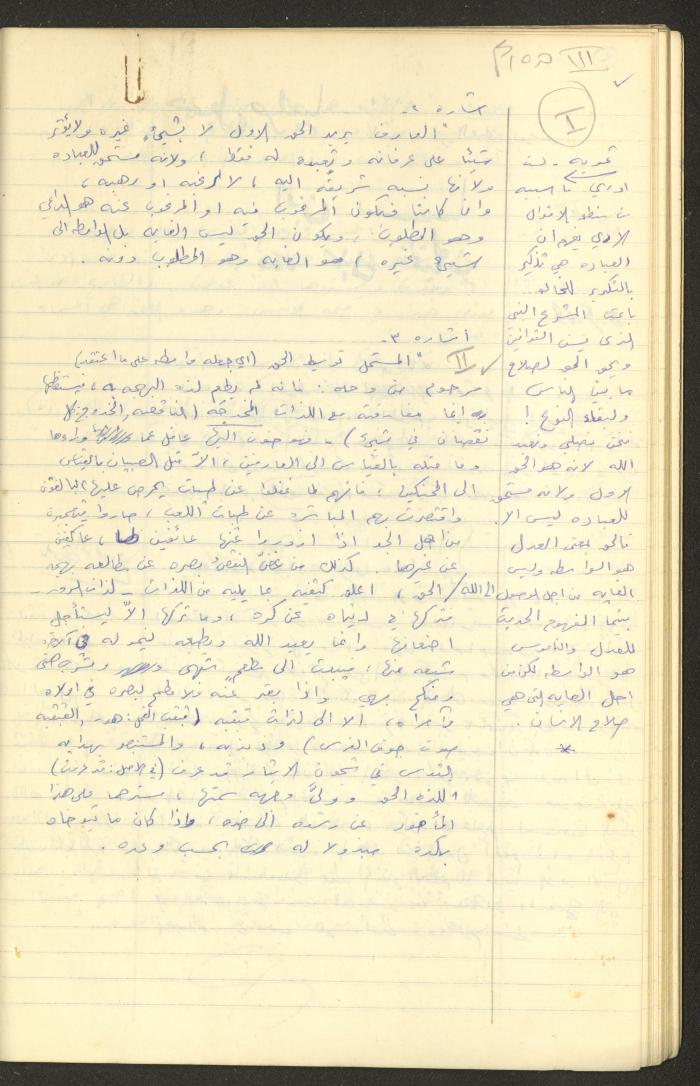 III
I
اشاره ٢.
"العارف يريد الحق الاول لا بشيء غيره ولا يؤثر
شيئا على عرفانه وتعبده له فقط، ولانه مستحق للعباده
ولانها نسبه شريفة اليه، لا لرغبه او رهبه،
وان كانتا فيكون المرغوب فيه او المرهوب عنه هو الداعي
وهو المطلوب، ويكون الحق ليس الغايه بل الواسطه الى
شيء غيره، هو الغايه وهو المطلوب دونه.
اشاره ٣.
II
"المستحل توسيط الحق (اي جعله واسطه على ما اعتقد)
مرحوم من وجه: فانه لم يطعم لذه البهجه به، فيستطعمها
انما معارفته مع اللذات المخدجه (الناقصه، الخدوج: كل
نقصان في شيء) - فهو حنون اليها غافل عما وراءها
وما مثله بالقياس الى العارفين، الا مثل الصبيان بالقياس
الى المحنكين، فانهم لما غفلوا عن طيبات يحرص عليها البالغون
واقتصرت بهم المباشره عن طيبات اللعب، صاروا يتعجبون
من اهل الجد اذا ازوروا عنها عائفين لها، عاكفين
على غيرها. كذلك من غض النقص بصره عن مطالعه بهجه
الحق، اعلق كفيه بما يليه من اللذات - لذات الزور -
فتركها في دنياه عن كره، وما تركها الا ليستأجل
اضعافها وانما يعبد الله ويطيعه ليخوله في الآخره
شبعه منها، فيبعث الى مطعم شهي ومشرب هني
ومنكح بهي واذا بعثر عنه فلا مطمح لبصره في اولاه
واخراه، الا الى لذات قبقبه (القبقبه
صوت جوف الفرس) وذبذبه، والمستبصر بهدايه
القدس في شجون الايثار قد عرف (في الاصل: قد عرفت)
اللذه الحق وولى وجهه سمتها، مسترحما على هذا
المأخوذ عن رشده الى ضده، واذا كان ما يتوخاه
بكده مبذولا له بحسب وعده.
تمويه - لست
ادري ما سببه
الاولى يفهم ان
العباده هي تذكير
بالتكرير للخالق
باعث المشرع النبي
الذي يسن القوانين
ونحو الحق لصلاح
ما بين الناس
ولبقاء النوع!
فنحن نصلي ونعبد
الله لانه هو الحق
الاول ولانه مستحق
للعباده ليس الا.
فالحق بمعنى العدل
هو الواسطه وليس
الغايه من اجل الوصول الى الله /
بينما المفهوم الحديث
للعدل والناموس
هو الواسطه لكن من
اجل الغايه التي هي
صلاح الانسان.
*